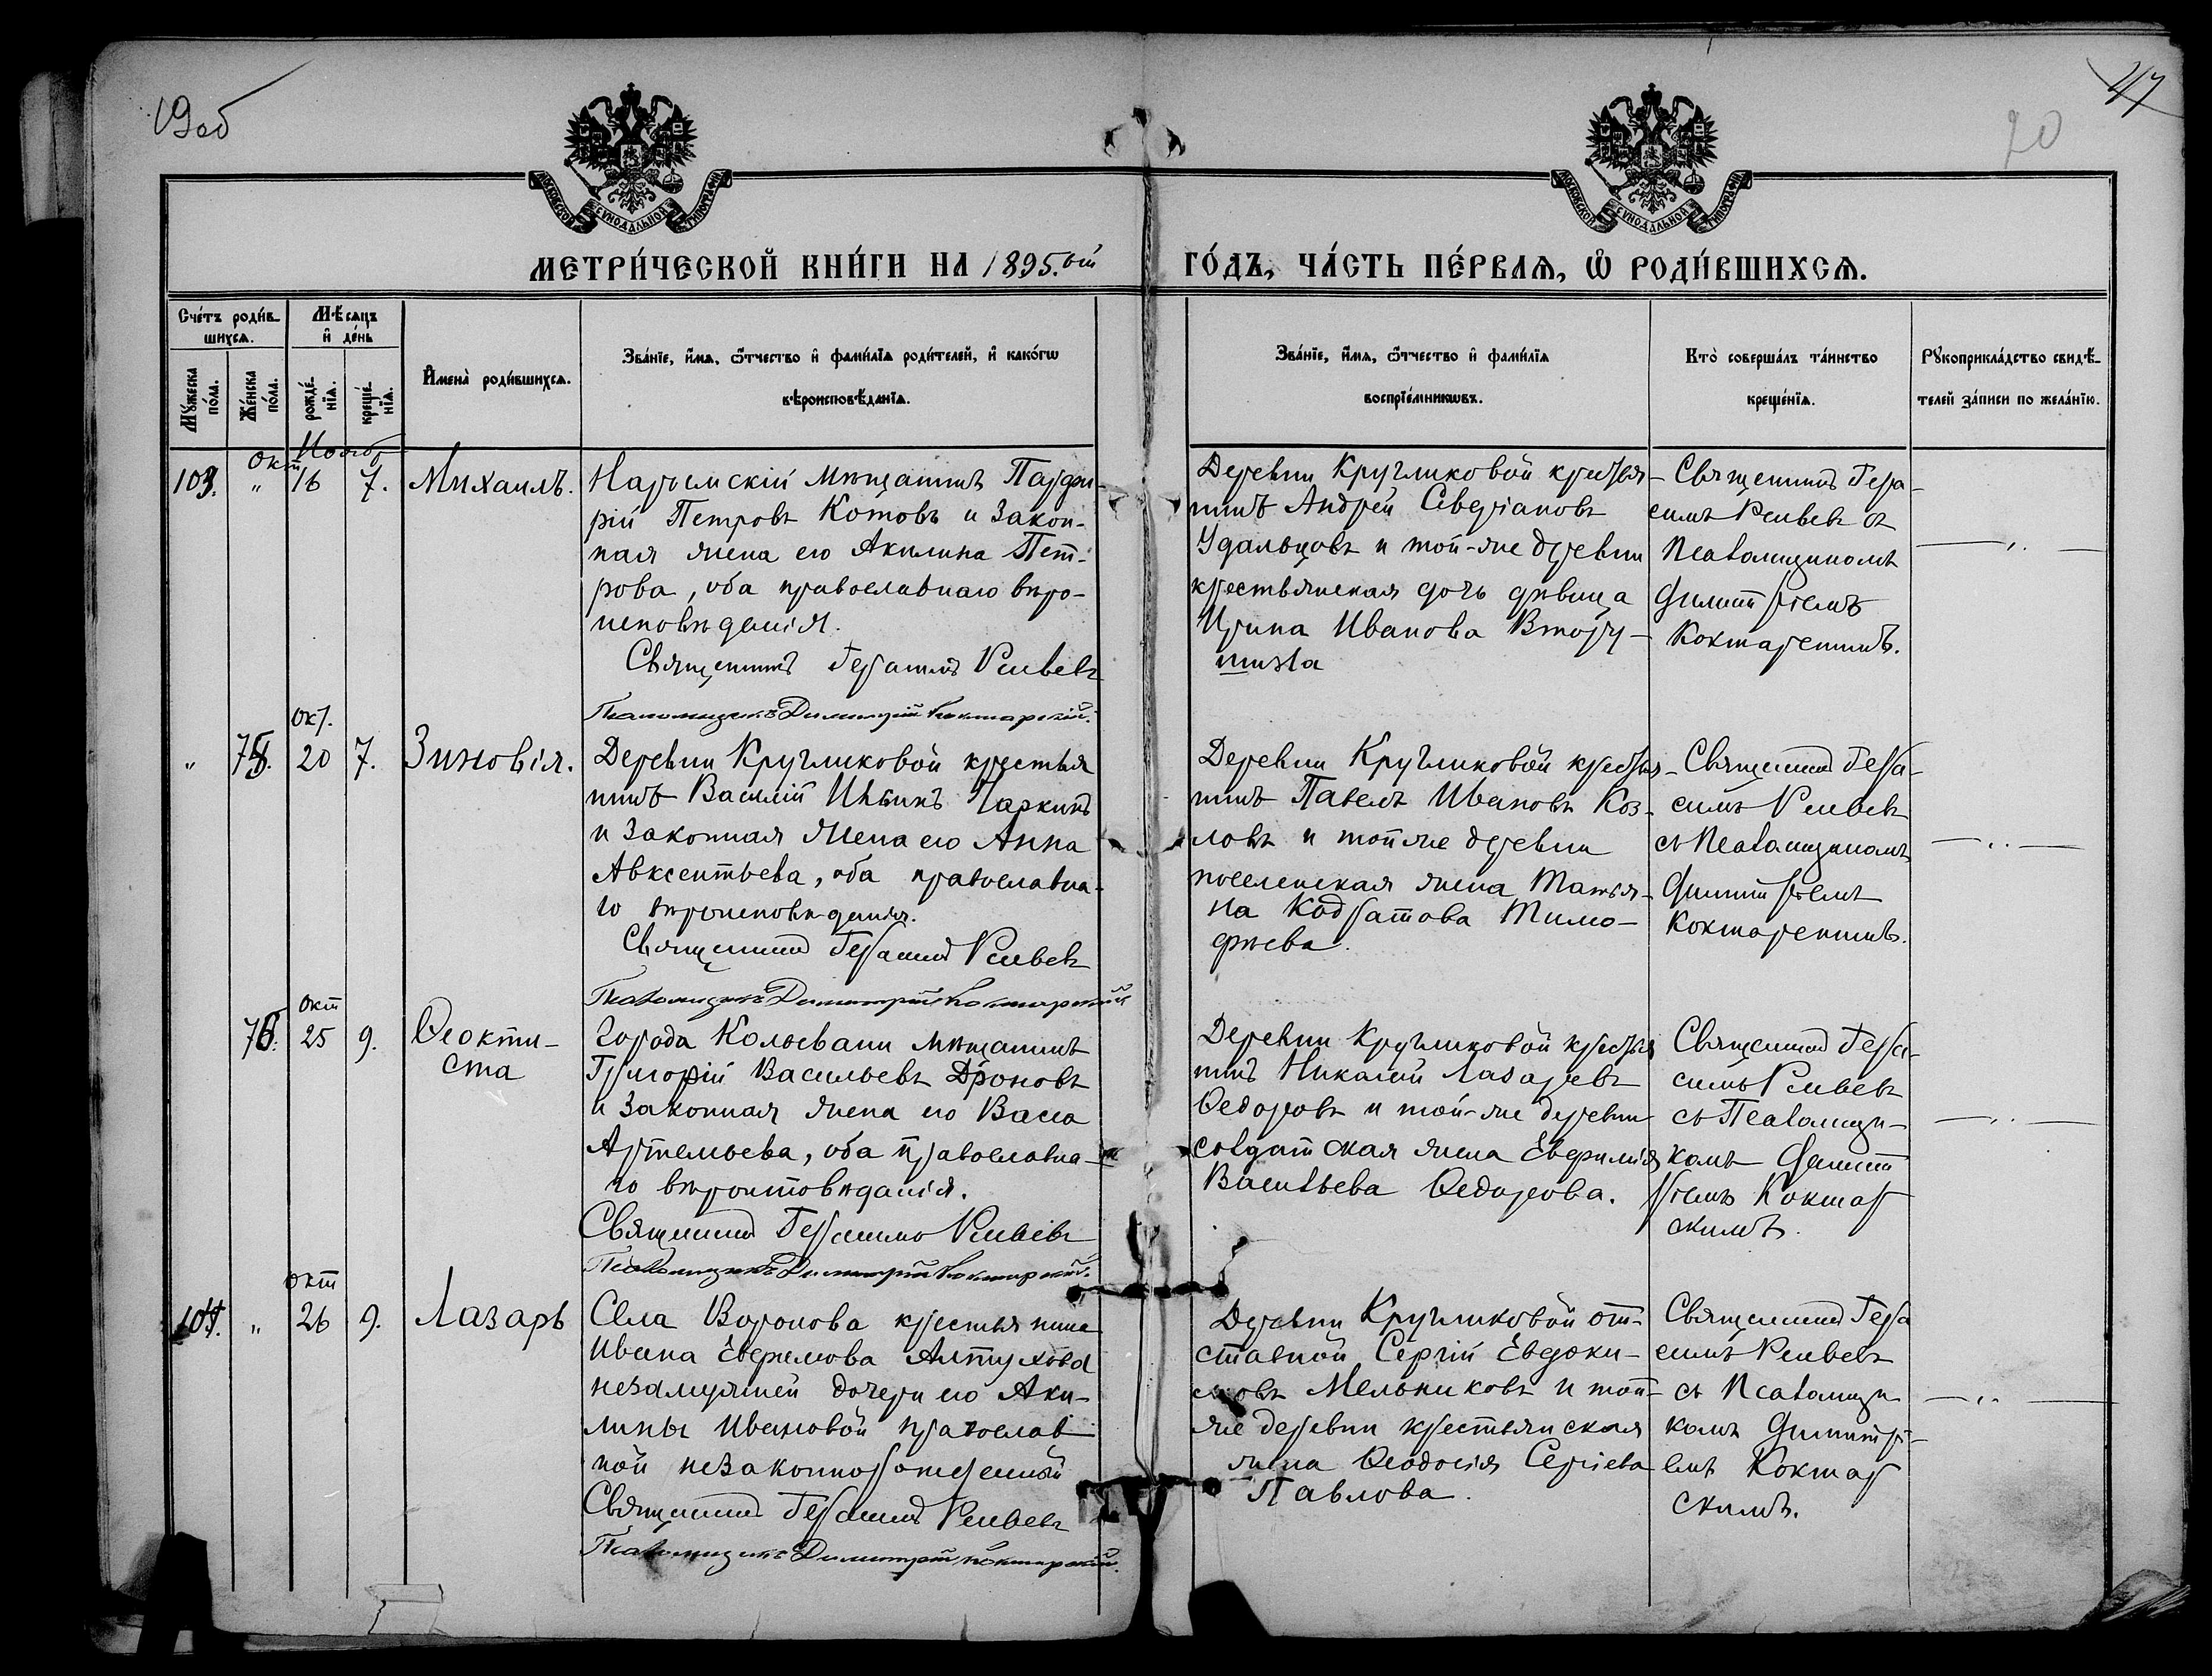 19об
47
20
МОСКОВСКОЙ СѴНОДАЛЬНОЙ ТИПОГРАФІИ
МОСКОВСКОЙ СѴНОДАЛЬНОЙ ТИПОГРАФІИ
МЕТРИ́ЧЕСКОЙ КНИ́ГИ НА 1895.ый ГО́ДЪ, ЧА́СТЬ ПЕ́РВАѦ, Ѽ РОДИ́ВШИХСѦ.
Сче́тъ роди́в-
шихсѧ.
Мѣ́сѧцъ
и҆ де́нь
Мꙋ́жеска по́ла.
Же́нска по́ла.
рожде́-
нїѧ.
креще́-
нїѧ.
И҆мена̀ роди́вшихсѧ.
Зва́нїе, и҆́мѧ, ѻ҆́тчество и҆ фами́лїѧ роди́телей, и҆ како́гѡ
вѣроисповѣ́данїѧ.
Зва́нїе, и҆́мѧ, ѻ҆́тчество и҆ фами́лїѧ
воспрїе́мникѡвъ.
Кто̀ соверша́лъ та́инство
креще́нїѧ.
Рꙋкоприкла́дство свидѣ́-
телей за́писи по жела́нїю.
окт Нояб
103. " 16 7. Михаилъ.
Нарымскій мѣщанинъ Парфи-
рій Петровъ Котовъ и закон-
ная жена его Акилина Пет-
рова, оба православнаго вѣро-
исповѣданія.
Священникъ Герасимъ
Псаломщикъ Димитрій Коктарскій.
Деревни Кругликовой крестья-
нинъ Андрей Севергіановъ
Удальцовъ и той-же деревни
крестьянская дочь дѣвица
Ирина Иванова Втору-
шина
Священникъ Гера-
симъ съ
Псаломщикомъ
Димитріемъ
Коктарскимъ.
окт.
" 75. 20 7. Зиновія.
Деревни Кругликовой крестья
нинъ Василій Чаркинъ
и законная жена его Анна
Авксентьева, оба православна-
го вѣроисповѣданія.
Священникъ Герасимъ
Псаломщикъ Димитрій Коктарскій
Деревни Кругликовой крестья-
нинъ Павелъ Ивановъ Коз-
ловъ и той же деревни
поселенская жена Татья-
на Кодратова Тимо-
фѣева.
Священникъ Гера-
симъ
съ Псаломщикомъ
Димитріемъ
Коктарскимъ.
окт
76. 25 9. Ѳеокти-
ста
Города Колывани мѣщанинъ
Григорій Васильевъ Дроновъ
и законная жена его Васса
Артемьева, оба православна-
го вѣроисповѣданія.
Священникъ Герасимъ
Псаломщикъ Димитрій Коктарскій.
Деревни Кругликовой крестья
нинъ Николай Лазаревъ
Ѳедоровъ и той-же деревни
солдатская жена Евфимія
Васильева Ѳедорова.
Священникъ Гера-
симъ
съ Псаломщи-
комъ Димит
ріемъ Коктар
скимъ.
окт
104. " 26 9. Лазарь
Села Воронова крестьянина
Ивана Евфимова Алтухова
незамужней дочери его Аки-
лины Ивановой православ
ной незаконнорожденный
Священникъ Герасимъ
Псаломщикъ Димитрій Коктарскій.
Деревни Кругликовой от-
ставной Сергій Евдоки-
мовъ Мельниковъ и той-
же деревни крестьянская
жена Ѳеодосія Сергіева
Павлова.
Священникъ Гера
симъ
съ Псаломщи
комъ Димитрі-
емъ Коктар
скимъ.